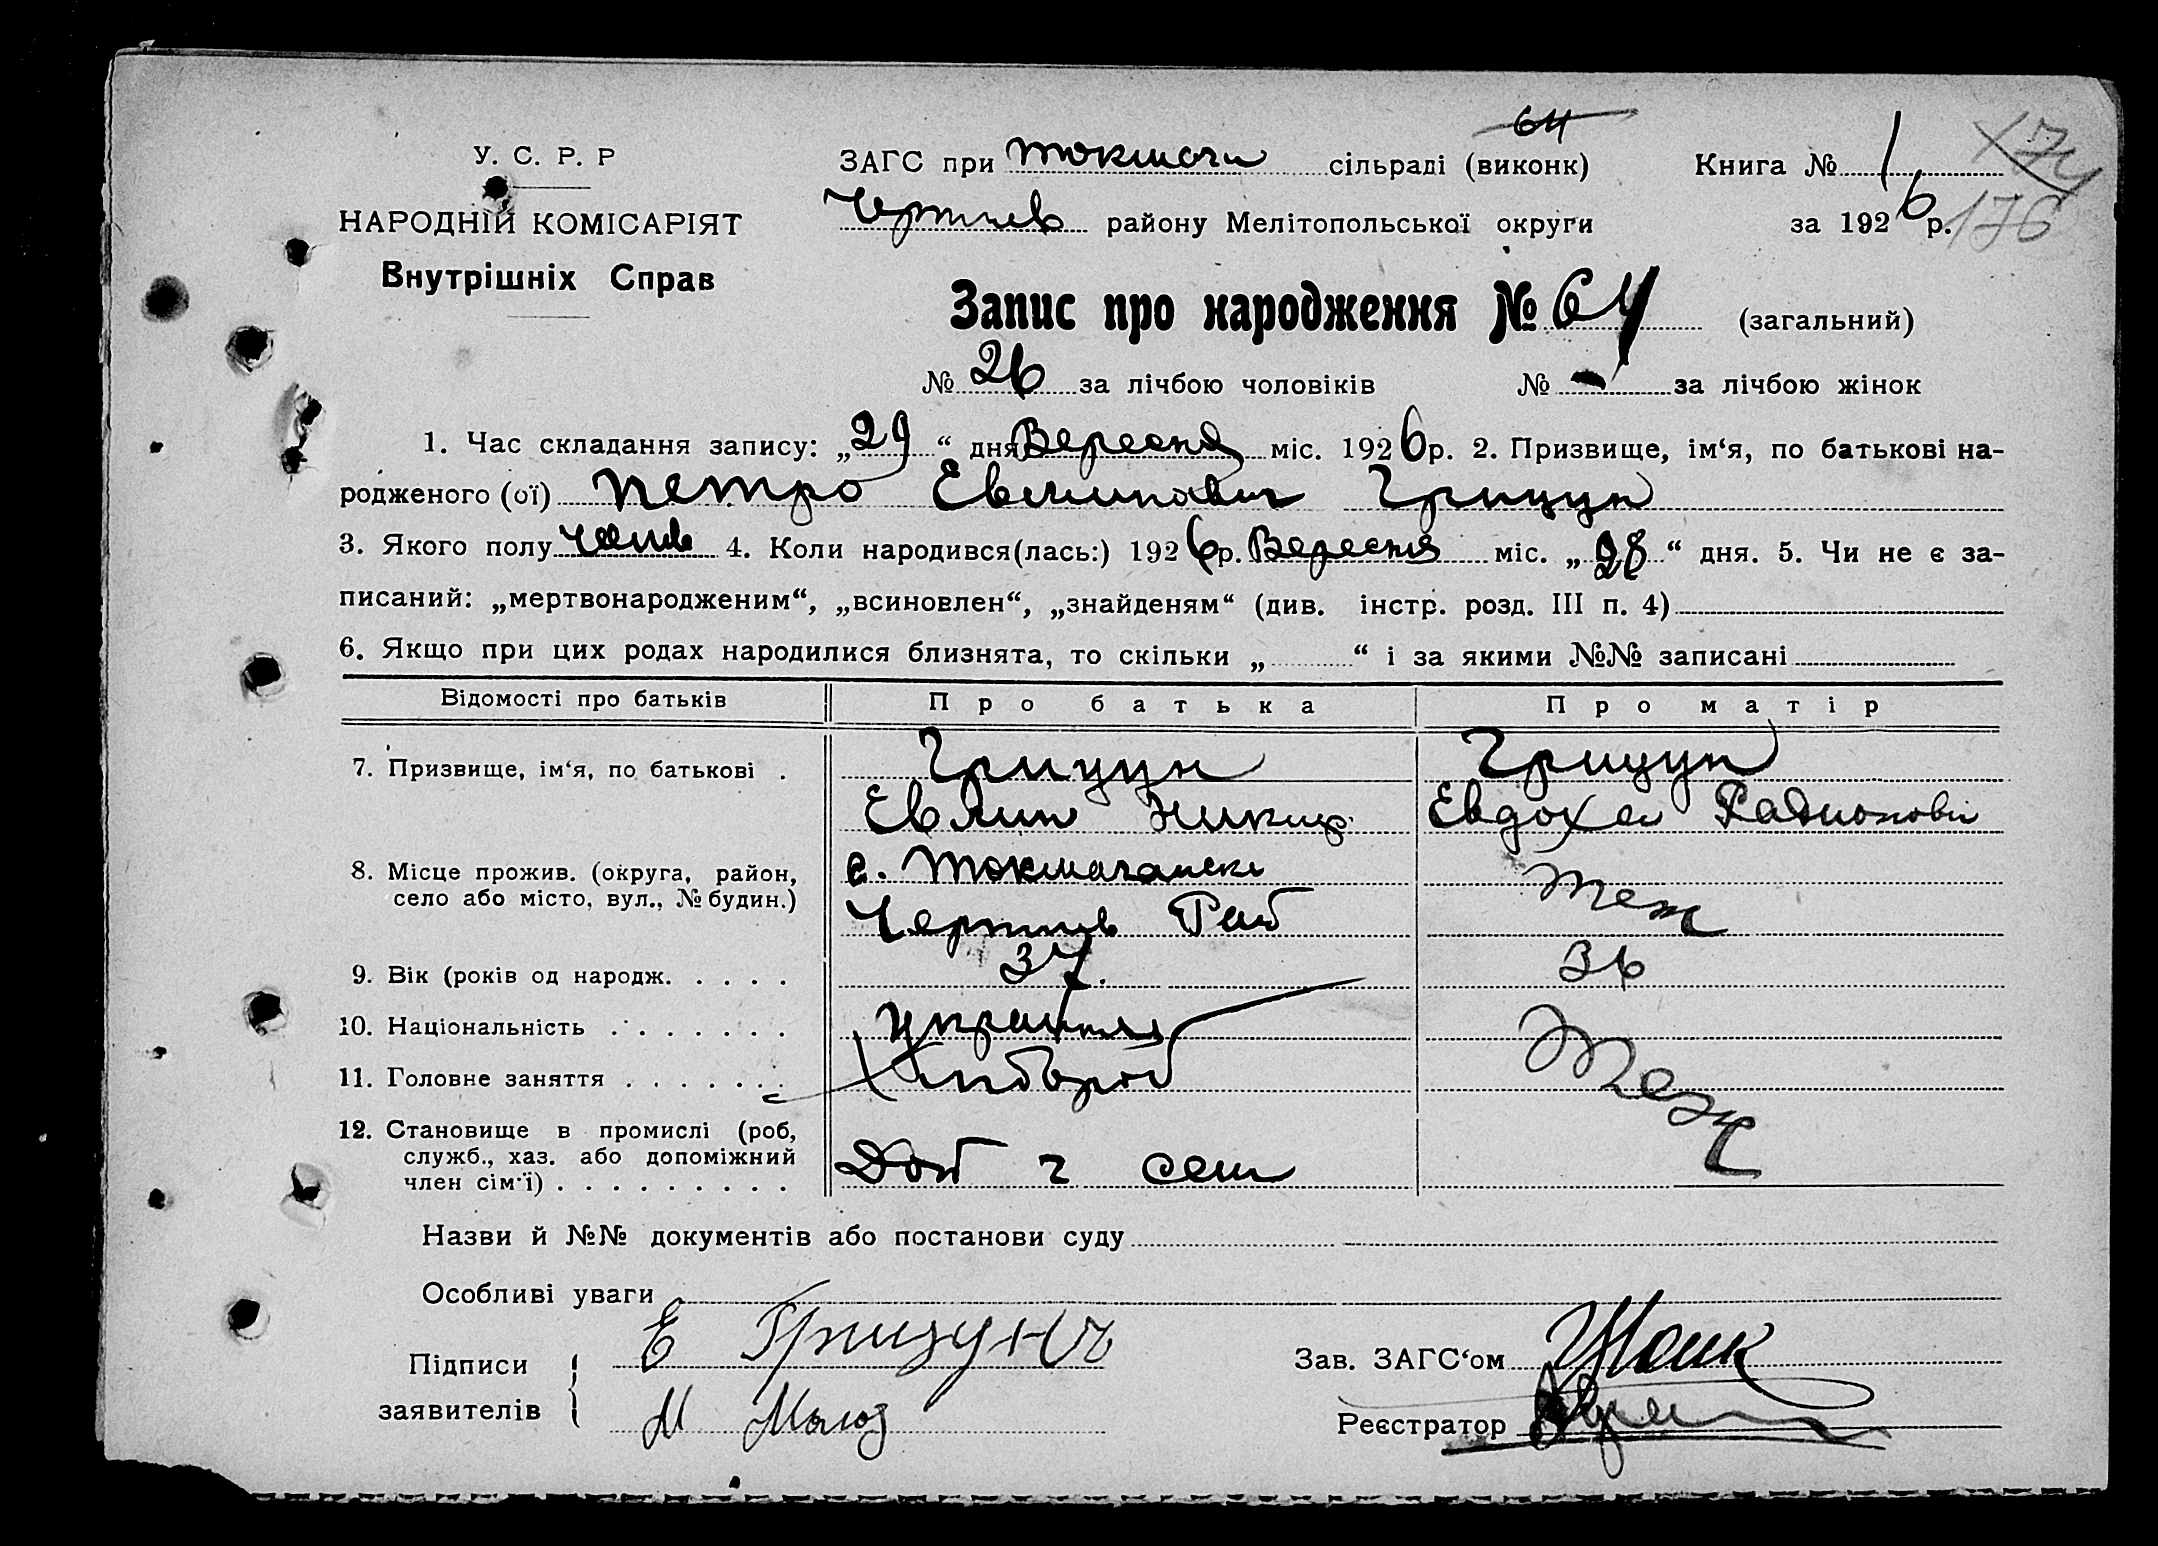 64
У. С. Р. Р
ЗАГС при Токмачи сільраді (виконк) Книга № 1 174
НАРОДНІЙ КОМІСАРІЯТ
Чернигів району Мелітопольської округи за 1926 р. 176
Внутрішніх Справ
Запис про народження № 64 (загальний)
№ 26 за лічбою чоловіків № - за лічбою жінок
1. Час складання запису: „29“ дня Вересня міс. 1926 р. 2. Призвище, ім‘я, по батькові на-
родженого (ої) Петро Грицун
3. Якого полу 4. Коли народився(лась:) 1926 р. Вересня міс. „28“ дня. 5. Чи не є за-
писаний: „мертвонародженим“, „всиновлен“, „знайденям“ (див. інстр. розд. III п. 4)
6. Якщо при цих родах народилися близнята, то скільки „ “ і за якими №№ записані
Відомості про батьків Про батька Про матір
7. Призвище, ім‘я, по батькові . Грицун Грицун
Никиф Евдоха Радионовн
8. Місце прожив. (округа, район, с.
село або місто, вул., № будин.) Рай теж
9. Вік (років од народж. . . . . 37. 36
10. Національність . . . . . . .
11. Головне заняття . . . . . . . Хлібороб теж
12. Становище в промислі (роб,
служб., хаз. або допоміжний
член сім‘ї) . . . . . . . . . Доп ч сем
Назви й №№ документів або постанови суду
Особливі уваги
Підписи Е Грицунъ Зав. ЗАГС‘ом
заявителів М Реєстратор